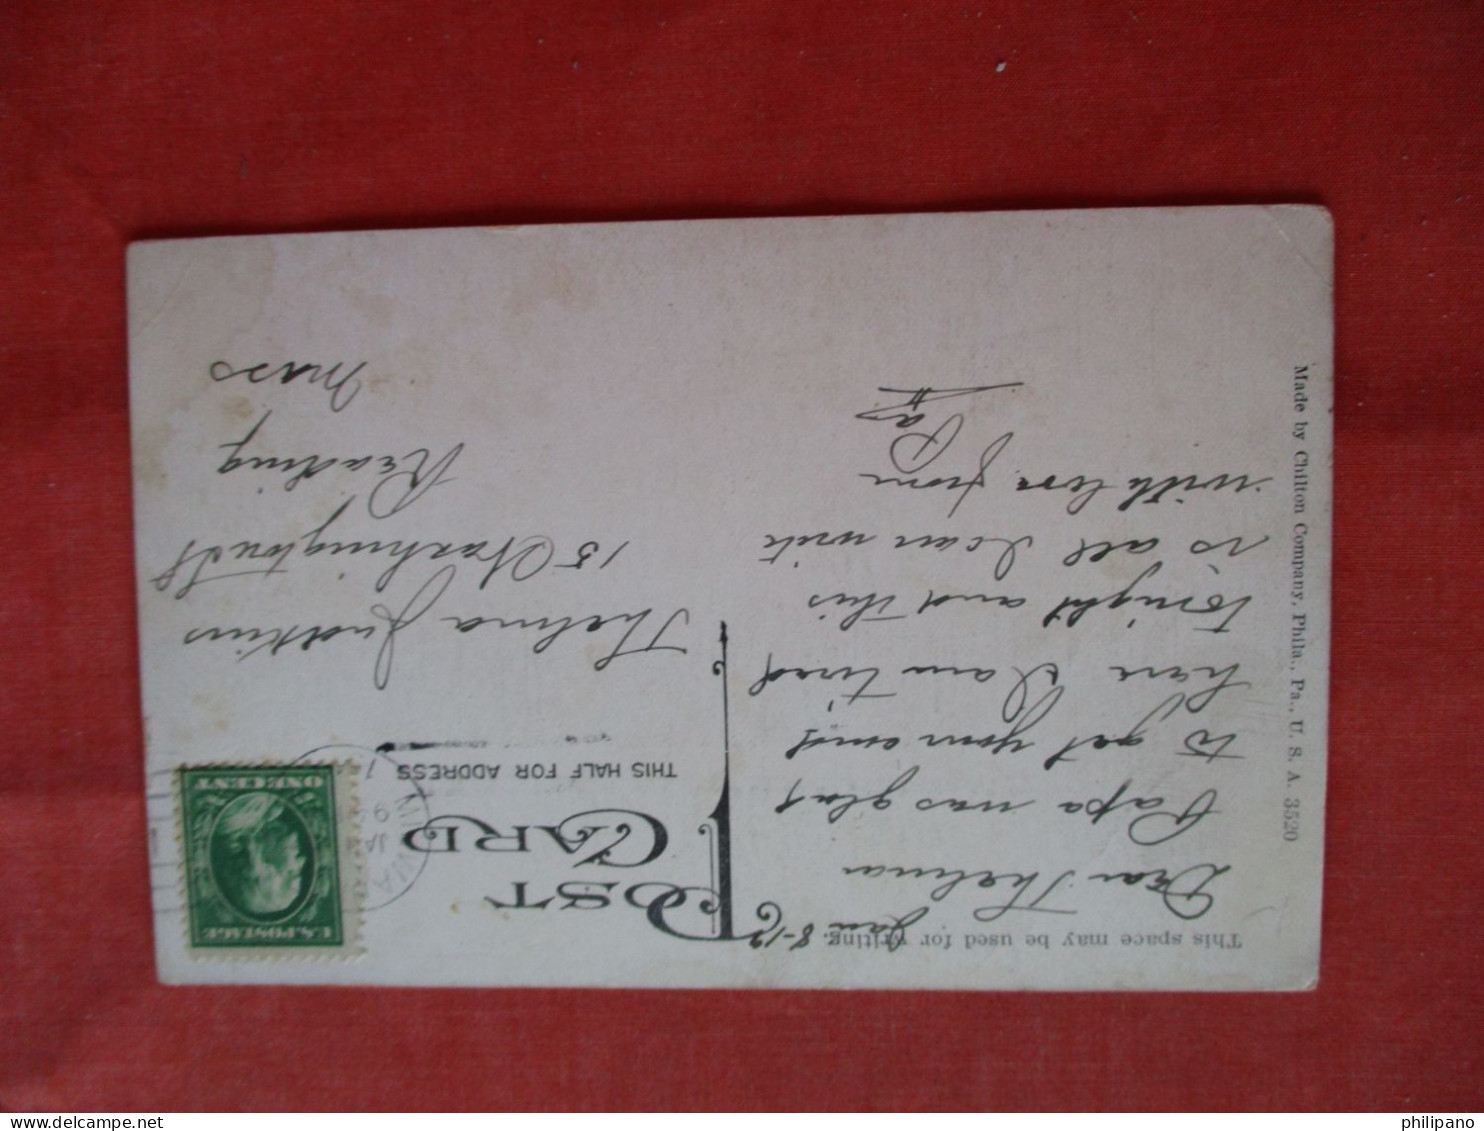 This space may be used for writing.
Jan 8-12
Dear Thelma
Papa was glad
to get your card
here I am tired
tonight and this
is all I can write
with love from
Pa
POST CARD
THIS HALF FOR ADDRESS
U.S. POSTAGE
ONE CENT
JAN
9
VA
Thelma Judkins
15 Washington St
Reading
Mass
Made by Chilton Company, Phila., Pa., U. S. A. 3520
philipano